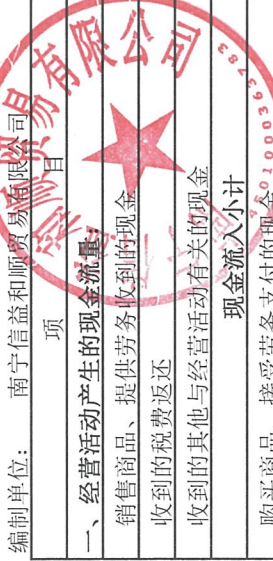 编制单位： 南宁信益和顺贸易有限公司
项 目
一、经营活动产生的现金流量：
销售商品、提供劳务收到的现金
收到的税费返还
收到的其他与经营活动有关的现金
现金流入小计
购买商品、接受劳务支付的现金
贸易有限公司